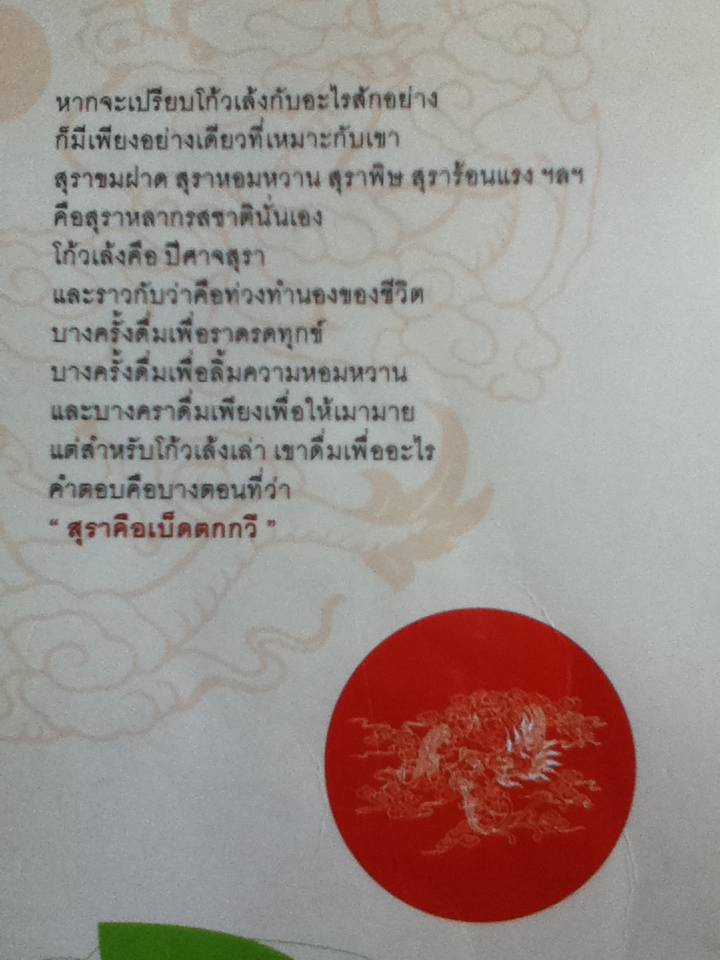 หากจะเปรียบโก้วเล้งกับอะไรสักอย่าง
ก็มีเพียงอย่างเดียวที่เหมาะกับเขา
สุราขมฝาด สุราหอมหวาน สุราพิษ สุราร้อนแรง ฯลฯ
คือสุราหลากรสชาตินั่นเอง
โก้วเล้งคือ ปีศาจสุรา
และราวกับว่าคือท่วงทำนองของชีวิต
บางครั้งดื่มเพื่อราดรดทุกข์
บางครั้งดื่มเพื่อลิ้มความหอมหวาน
และบางคราดื่มเพียงเพื่อให้เมามาย
แต่สำหรับโก้วเล้งเล่า เขาดื่มเพื่ออะไร
คำตอบคือบางตอนที่ว่า
“ สุราคือเบ็ดตกกวี ”